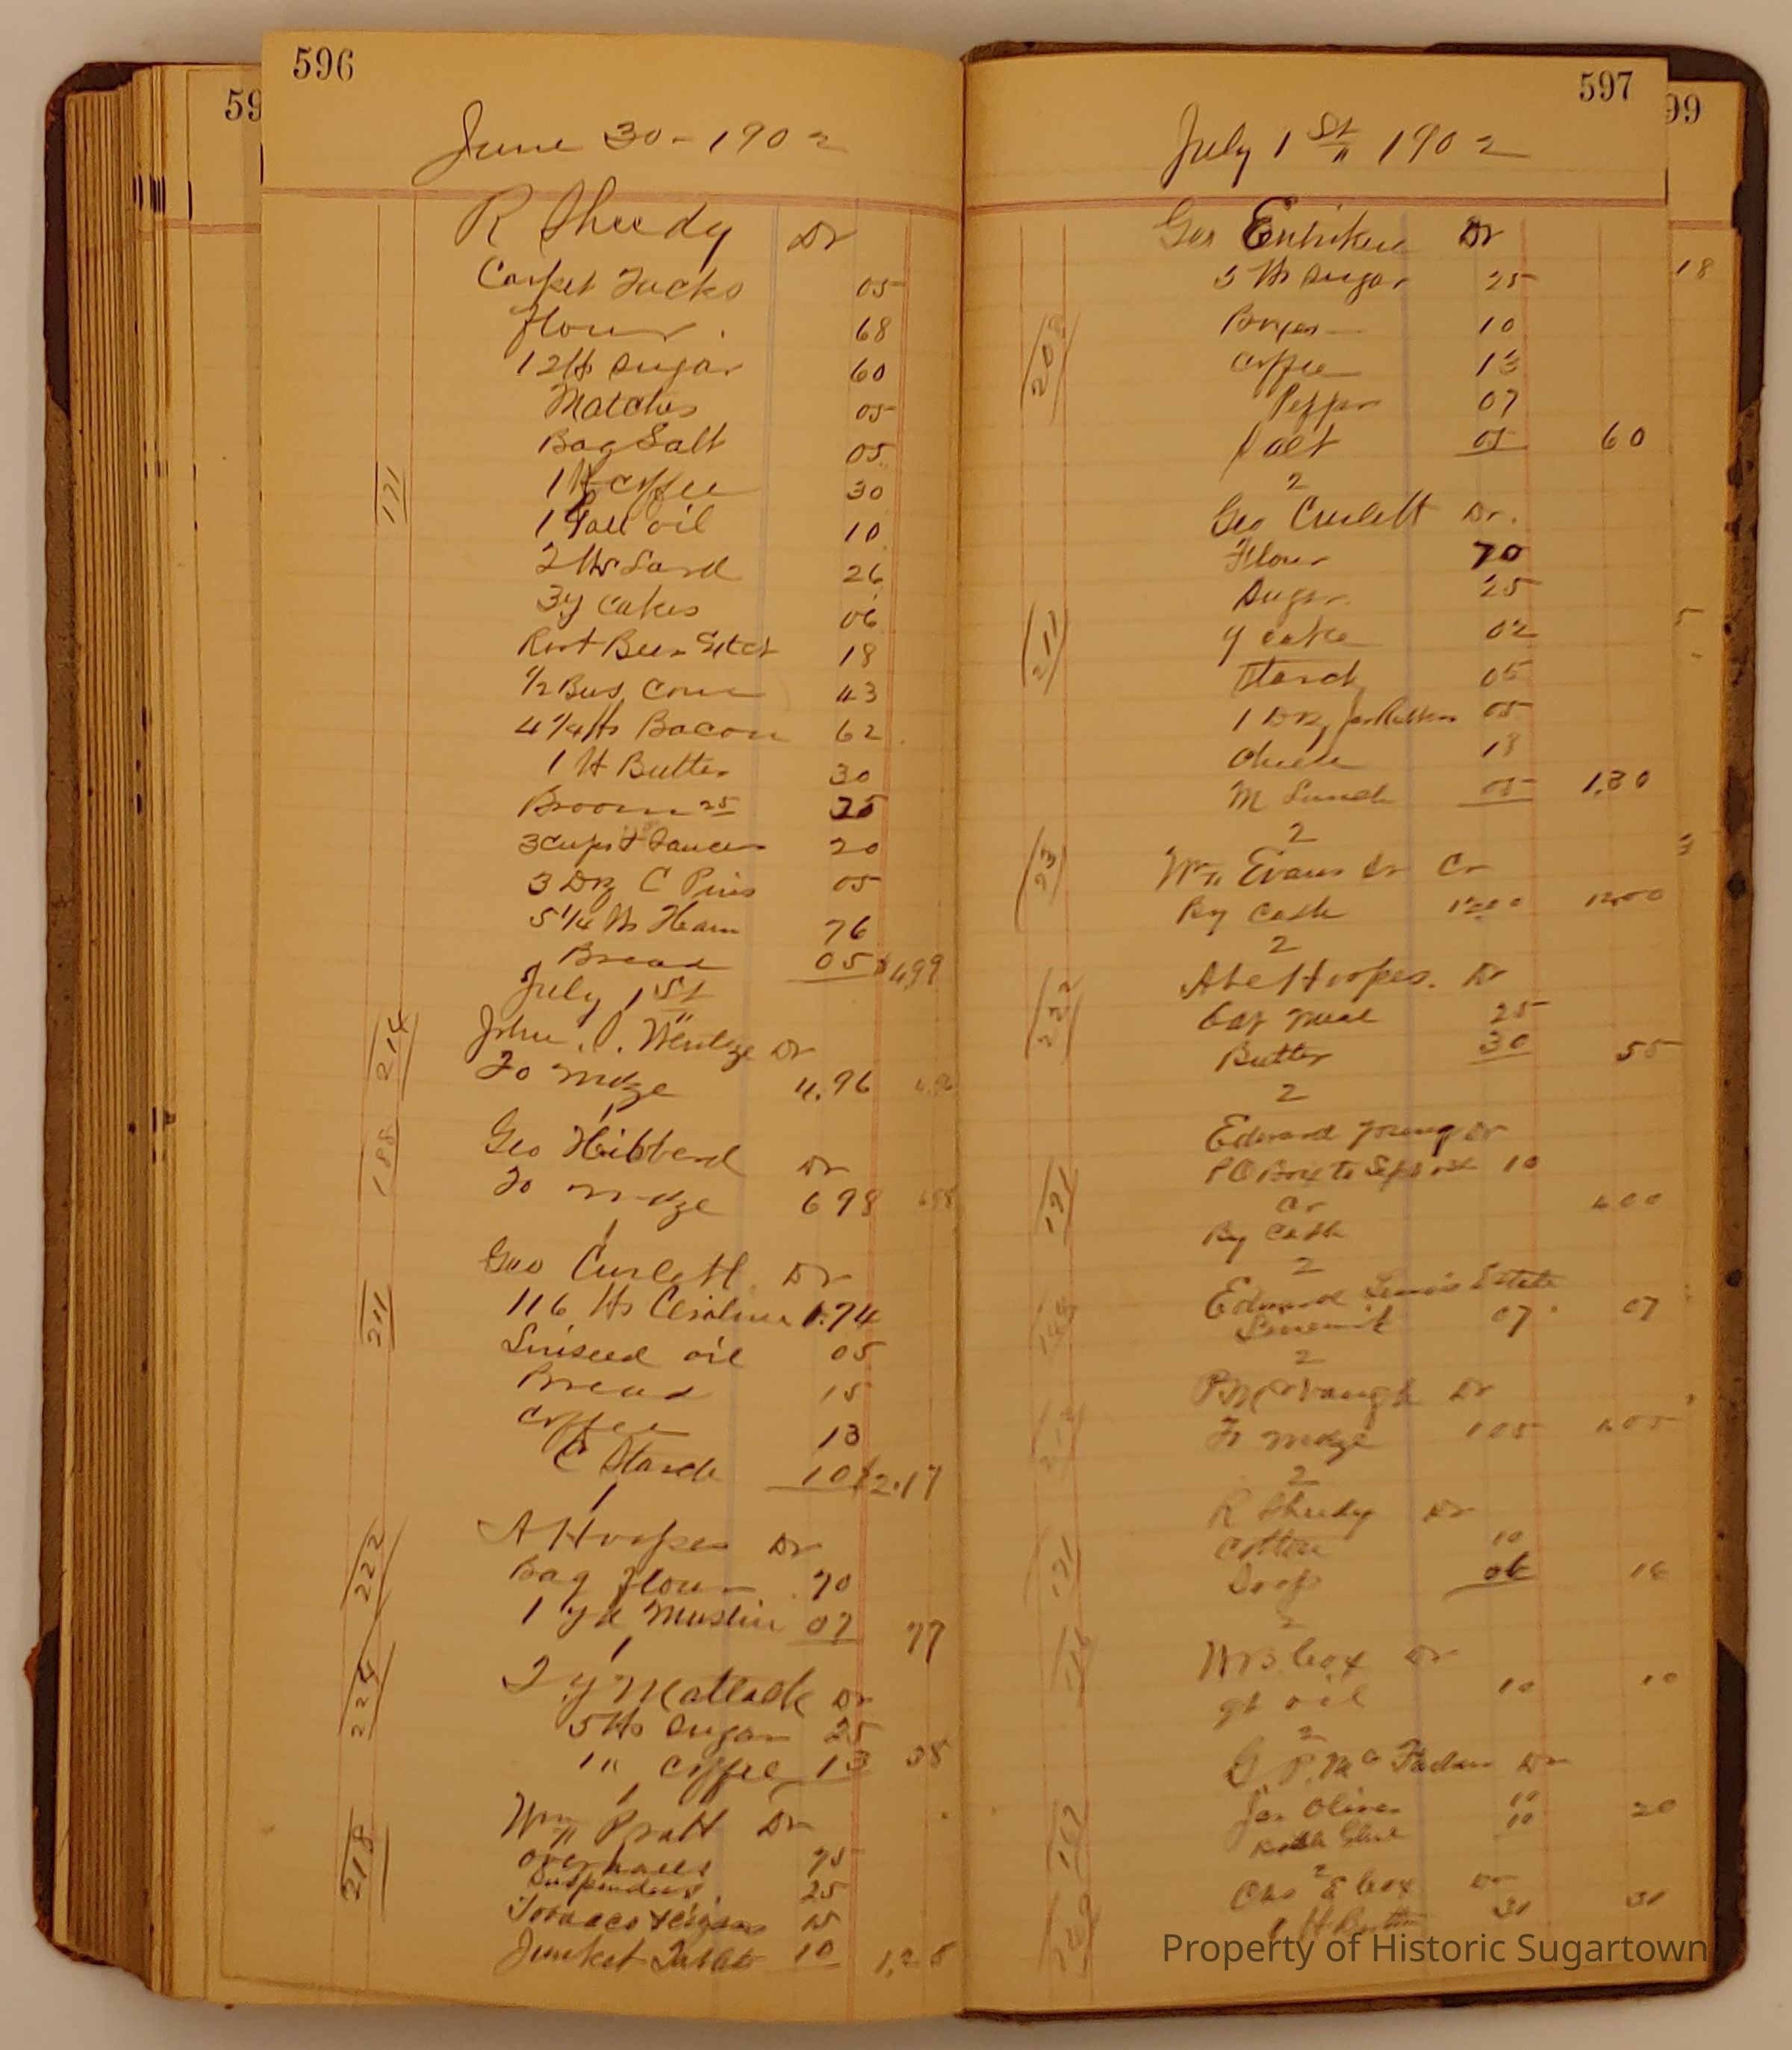 596
59
June 30 - 1902
R Sheedy Dr
Carpet Tacks 05
Flour 68
12 lbs Sugar 60
Matches 05
Bag Salt 05
171
1 lb Coffee 30
1 Gall oil 10
2 lbs Lard 26
3 y cakes 06
Root Beer Extct 18
1/2 Bus, Corn 43
4 1/4 lbs Bacon 62
1 lb Butter 30
Broom 25 25
3 cups & Saucers 20
3 Doz C Pins 05
5 1/4 lbs Ham 76
Bread 05 $4.99
July 1st
214
John . Wentze Dr
To mdze 4.96 4.96
1
188
Geo Hibberd Dr
To mdze 698 698
1
211
Geo Curlett Dr
116 lbs 1.74
Linseed oil 05
Bread 15
Coffee 13
C Starch 10 $2.17
1
222
A Hoopes Dr
Bag Flour 70
1 yd Muslin 07 77
1
T. y Matlack Dr
5 lbs Sugar 25
1 " Coffee 13 38
1
218
Wm Pratt Dr
overhalls 75
Suspenders 25
Tobacco & cigars 15
Junket Tablets 10 1,25
597
99
July 1 St 1902
Geo Entriken Dr
5 lbs Sugar 25
18
208
10
Coffee 13
Pepper 07
Salt 05 60
2
Geo Curlett Dr.
Flour 70
Sugar 25
211
y cake 02
Starch 05
1 Doz Jar Rubbers 05
Cheese 18
M Lunch 05 1,30
2
Wm Evans Sr Cr
By Cash 1200 12.00
2
222
Abe Hoopes. Dr
Oat meal 25
Butter 30 55
2
Edward Young Dr
P O Box to Sept 10
191
Cr
By Cash 400
2
Edward Lewis Estate
07 07
2
P McVaugh Dr
To mdze 105 105
2
R Sheedy Dr
171
Cotton 10
Soap 08 18
2
W B Cox Dr
116
qt oil 10 10
2
G. P. Mc Faden Dr
Jar Olives 10
167
Bottle Glue 10 20
2
Chas E Cox Dr
1 lb Butter 31 31
Property of Historic Sugartown